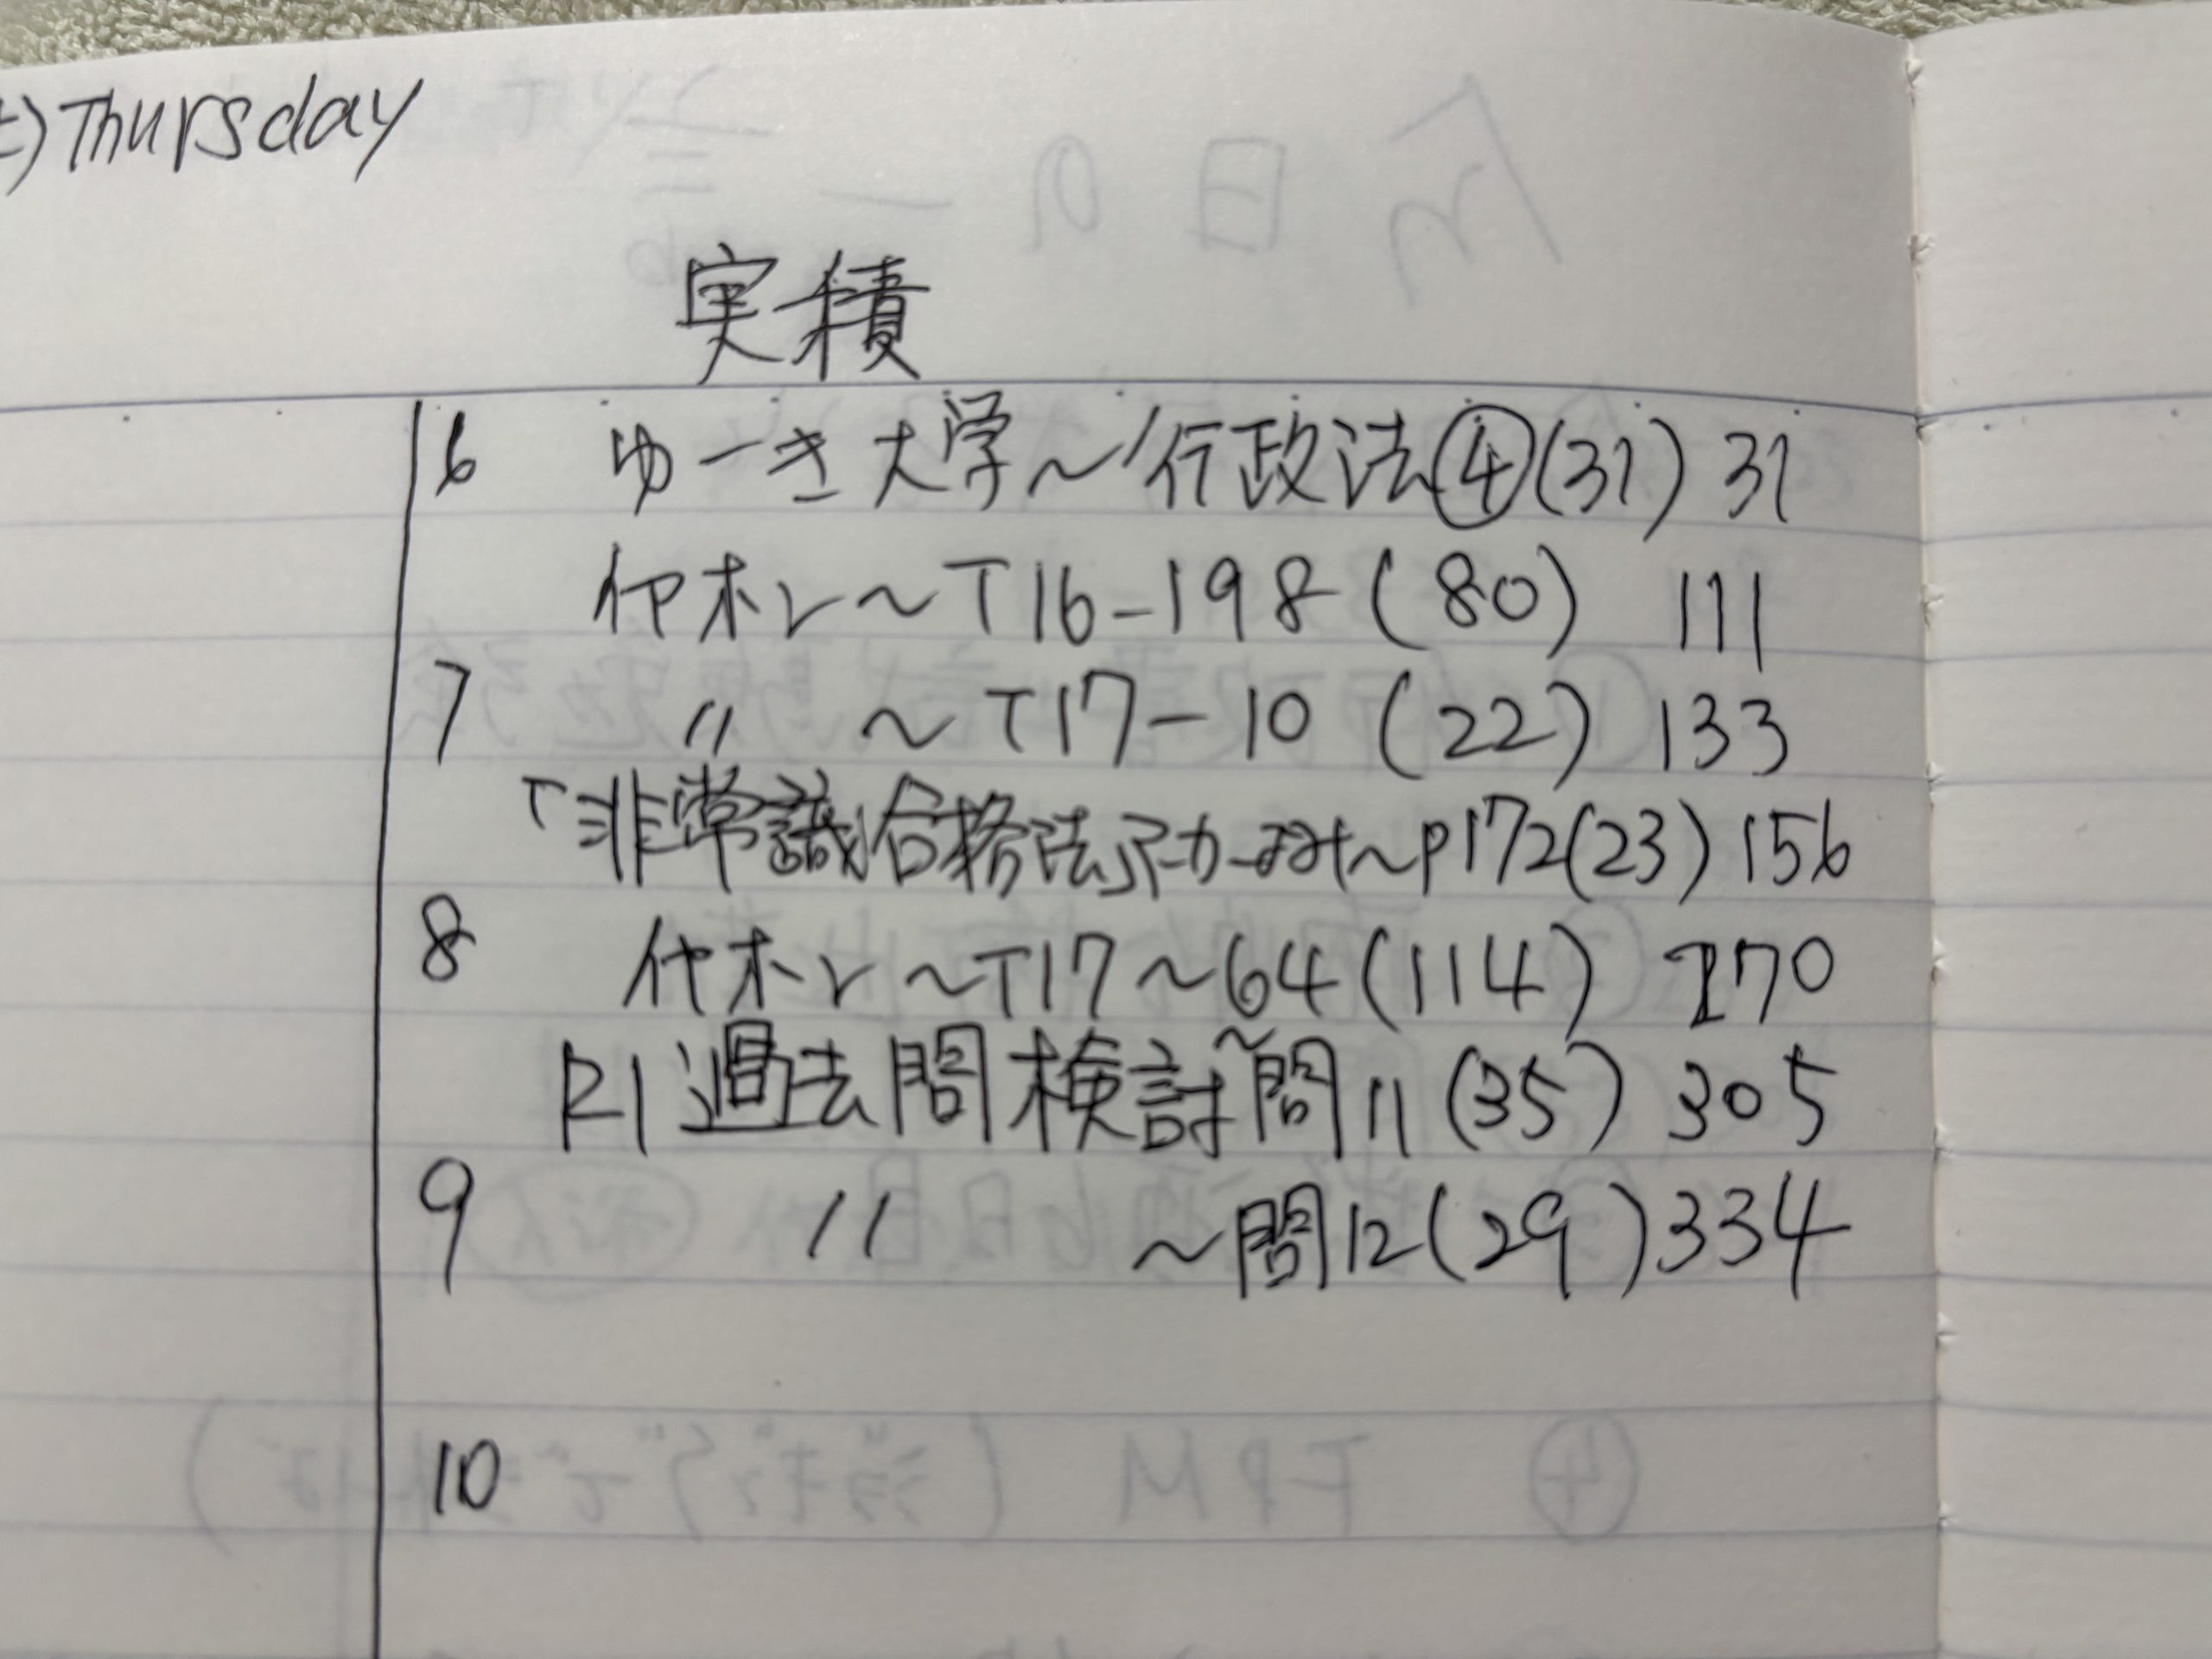 Thursday
実積
6 ゆーき大学〜行政法④(31) 31
イヤホン〜T16-198(80) 111
7 〃 〜T17-10(22) 133
「非常識合格法 〜P172(23) 156
8 イヤホン〜T17〜64(114) 270
R1過去問検討〜問11(35) 305
9 〃 〜問12(29) 334
10